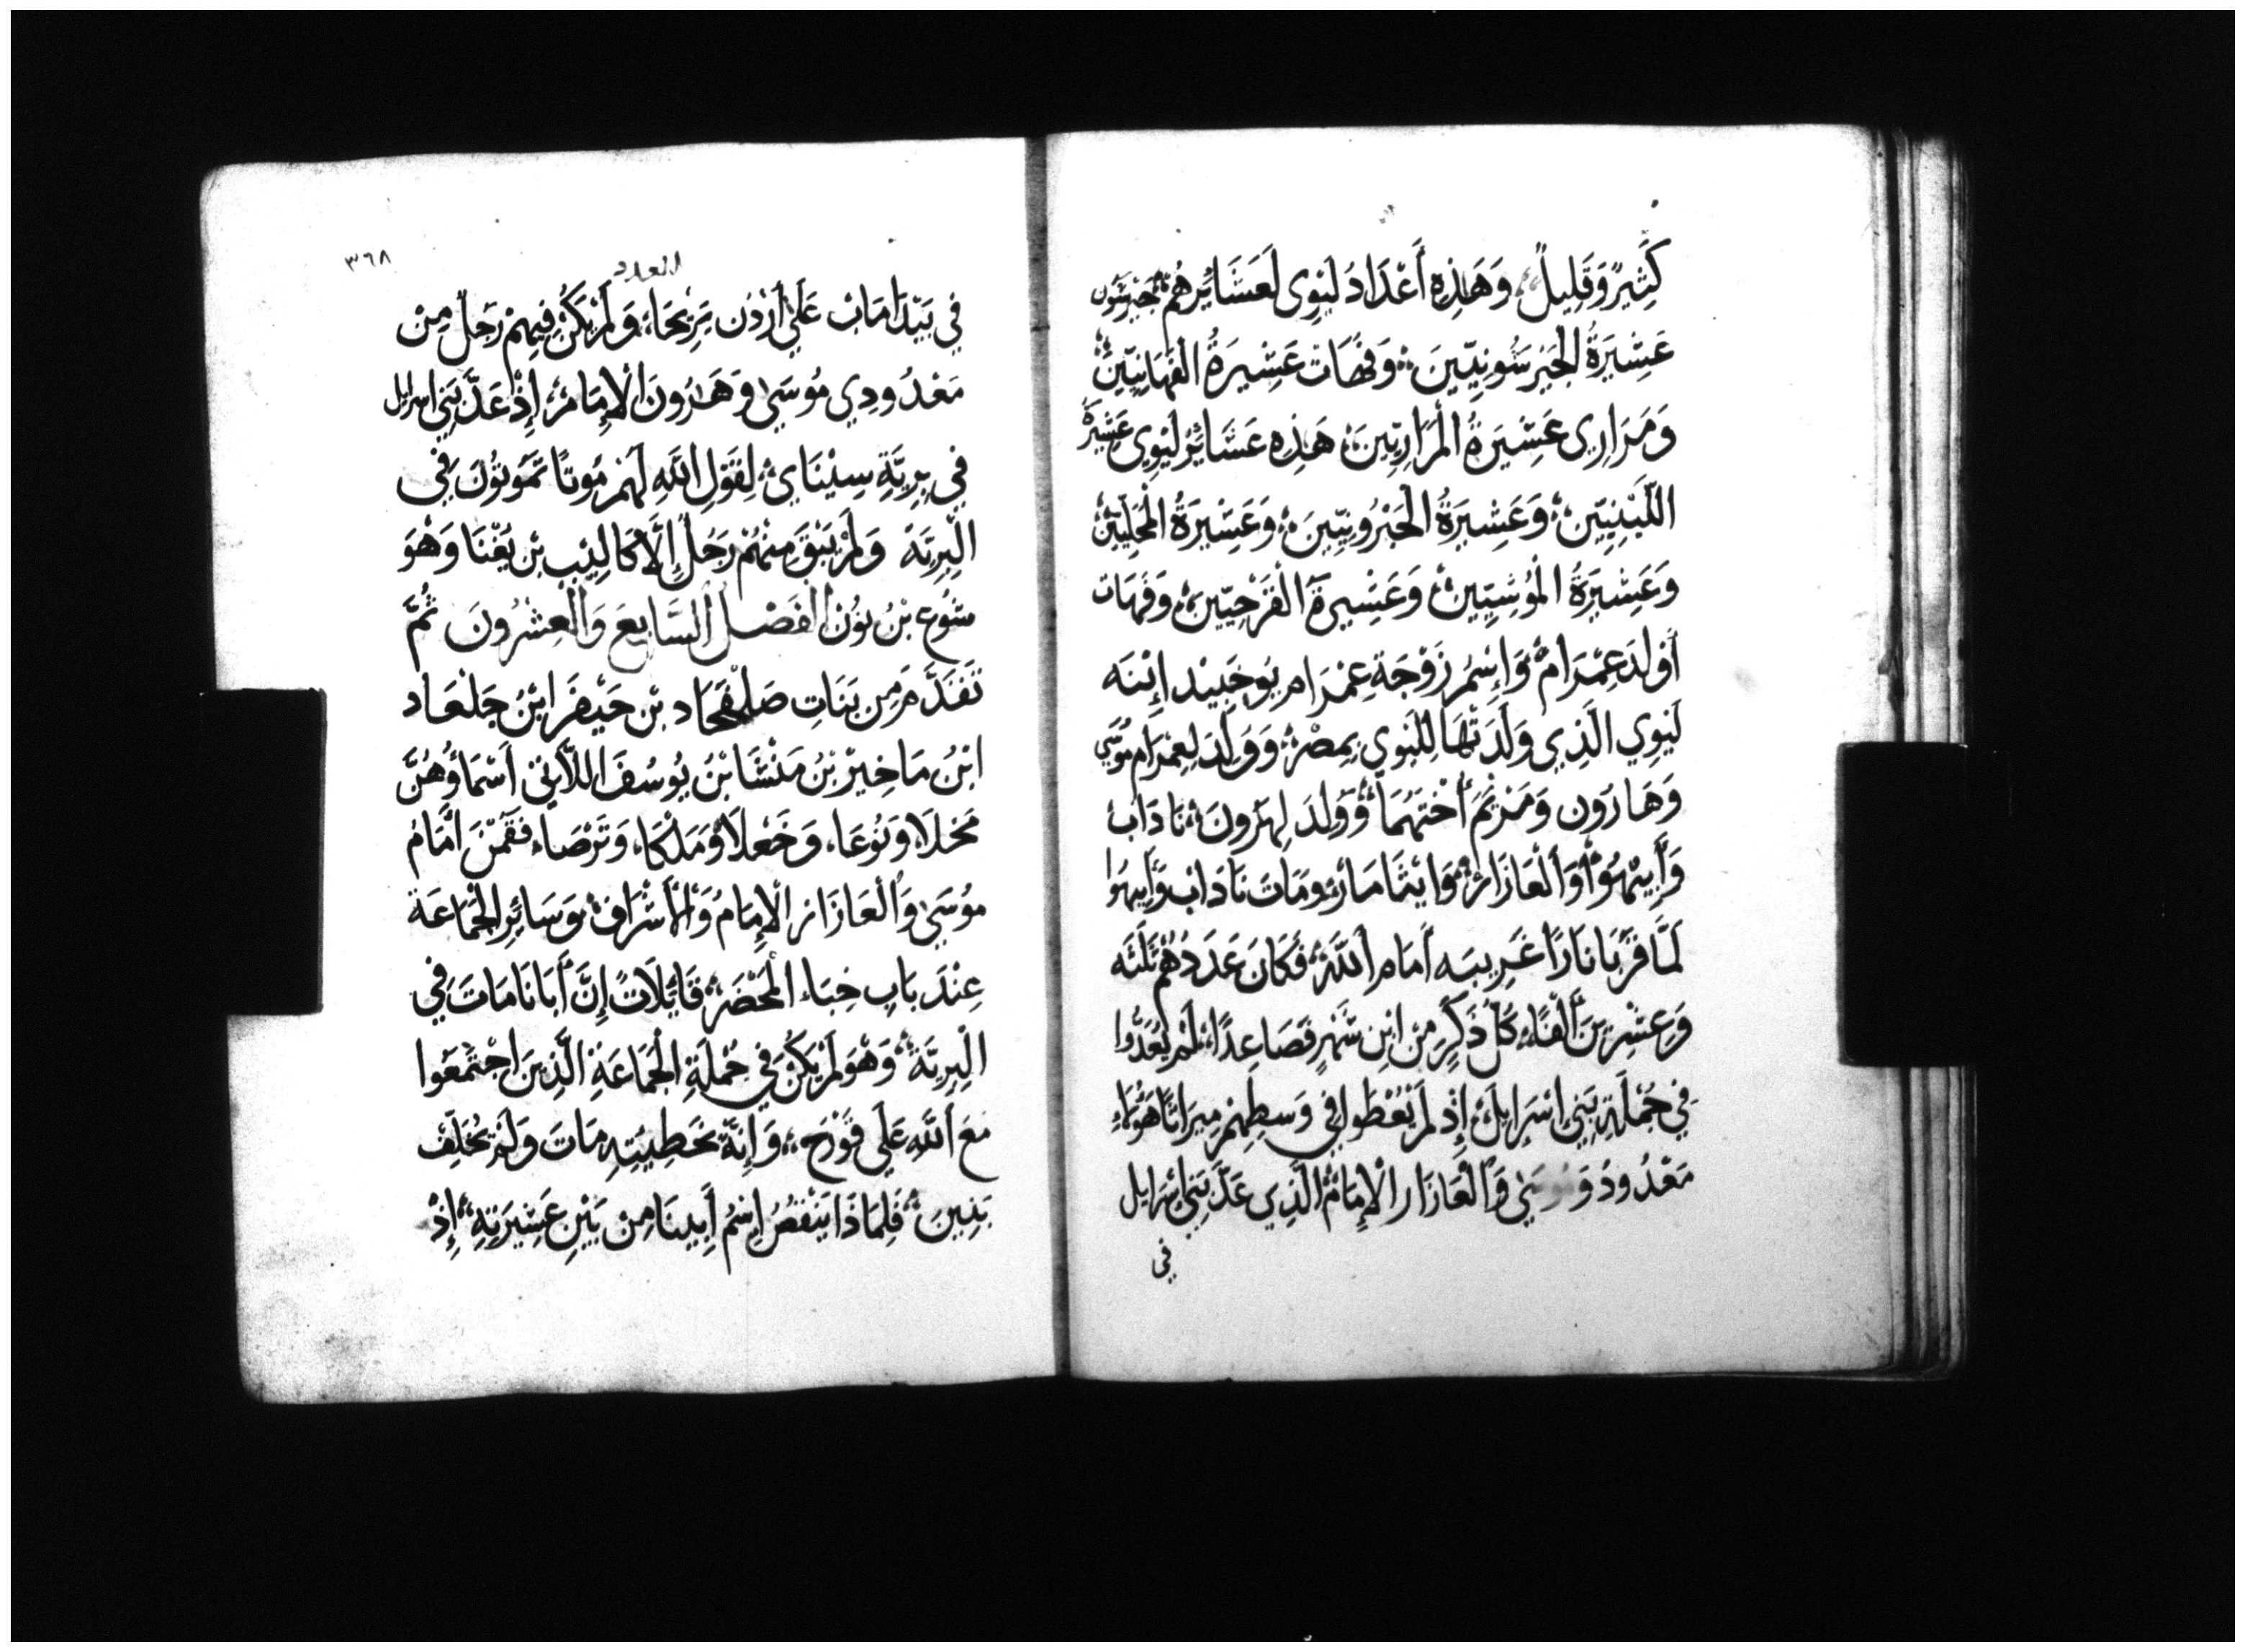 كَثِيرٌ وَقَلِيلٌ، وَهَذِهِ أَعْدَادُ لَيَوِى لَعَشَائِرِهُم جَيرشَون
عَشِيَرةُ الجَيْرشُونِيّيَن، وَقهَات عَشِيرةُ القهَاتِيّين
وَمَرَارِى عَشِيَرةُ المَرَارِيّينَ، هَذِهِ عَشَائِرُ لَيَوِي عَشِيَرةُ
اللّبْنِيّين، وَعَشِيَرةُ الحَبْرُونِيّينَ، وَعَشِيَرةُ المْحَلِيّين
وَعَشِيَرةُ المْوُشِيّيِن وَعَشِيرَة القَرَحِيّيِن، وَقَهات
أَولَدَ عِمْرَامَ وَإِسمُ زَوْجَة عِمْرَام يُوخَبِيْد إِبْنَه
لَيَوِي الَّذِي وَلَدَتْهَا لِلَيَوِي بِمِصْر، وَوَلَدَ لِعِمْرَام مُوسَي
وَهَارَون وَمَرْيَم أُخْتَهُمَا، وَوُلِدَ لِهَرُونَ، نَادَاب
وَأَبِيْهُوْا وَأَلْعَازَار، وَايْثَامَار، وَمَاتَ نَادَاب وَأَبيهوا
لَمَّا قَرَّبَا نَارًا غَرِيبَه أَمَام اَللَّه، فَكَانَ عَدَدُهُم ثَلَثَه
وَعِشْرِينَ أَلْفًا، كُلّ ذَكَرٍ مِن ابْنِ شَهْرٍ فَصَاعِدًا، لَمْ يُعَدُّوا
فِي جُمْلَةِ بَنِي اسْرَايلَ، إِذ لَمْ يُعْطَوا فِي وَسطِهِمْ مِيرَاثًا هَوُلاءِ
مَعْدُودُو مُوسَىٰ وَأَلْعَازَار الإِمَامُ الَّذِي عَدَّ بَنِي اسْرايل
فى
٣٦٨
العدد
فِي بَيْدَا مَاب عَلَي أَرْدُن يَرِيْحَا، وَلَمْ يَكُنْ فِيهِمْ رَجَلٌ مِنْ
مَعْدُودِي مُوسَىٰ وَهَارُونَ الإِمَام، إِذْ عَدَّ بَنِي اسرايل
فِي بِرِيَّةِ سِيْنَاي، لِقَوْلِ اللَّهِ لَهُمْ مَوتًا تَمَوتُوُنَ فِي
الْبِرِيَّة وَلَمْ يَبْقَ مِنْهُمْ رَجُلُ إِلَّا كَالِيْب بن يُفْنَا وَهْوَ
شُوع بْنُ نُوُن الفَصْل السَّابِعَ وَالعِشرُونَ ثُمَّ
تَقَدَّمَ مِن بَنَاتِ صَلْفَحَاد بْن حَيْفَر ابْنُ جَلْعَاد
ابْنُ مَاخِيْرْ بْنُ مَنْشَا بْنُ يُوسُفَ اللَّاتي أَسْمَاؤُهُنَّ
مَحْلَا، وَنُوعَا، وَحَعْلَا وَمَلْكَا، وَتَرْصَا، فَقُمْنَ أَمَامُ
مُوسَىٰ وَأَلْعَازَار الإِمَامُ وَالأَشْرَاف، وَسَائِرِ الجَمَاعَة
عِنْدَ بَاب خِبَاء المَحْضَر، قَايُلَاتً إِنَّ أَبَانَا مَاتَ فِي
الْبِرِيَّة، وَهْوَ لَمْ يَكُنْ فِي جُمْلَةِ الْجَمَاعَةِ الَّذِينَ اجْتَمَعُوا
مَعَ اَللَّهِ عَلَي قَوْرَح، وَإِنَّهُ بخَطِيئتِهِ مَاتَ وَلَمْ يُخَلِّف
بَنِينَ، فَلِمَاذَا يَنْقصُ إِسْمُ أَبِينَا مِنْ بَيْنِ عَشِيَرتِهِ، إِذْ